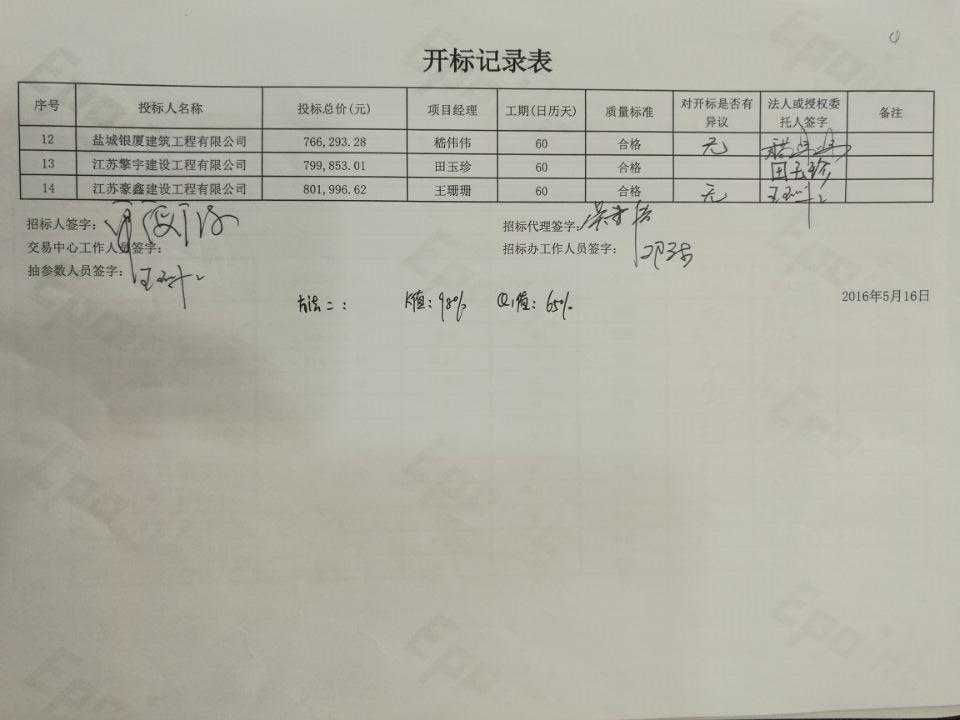 开标记录表
序号 投标人名称 投标总价(元) 项目经理 工期(日历天) 质量标准 对开标是否有异议 法人或授权委托人签字 备注
12 盐城银厦建筑工程有限公司 766,293.28 嵇伟伟 60 合格 无
13 江苏擎宇建设工程有限公司 799,853.01 田玉珍 60 合格 田玉珍
14 江苏豪鑫建设工程有限公司 801,996.62 王珊珊 60 合格 无 王珊珊
招标人签字: 招标代理签字:
交易中心工作人员签字: 招标办工作人员签字:
抽参数人员签字: 王珊珊
2016年5月16日
方法二: K值:98% Q1值:65%
Epoint